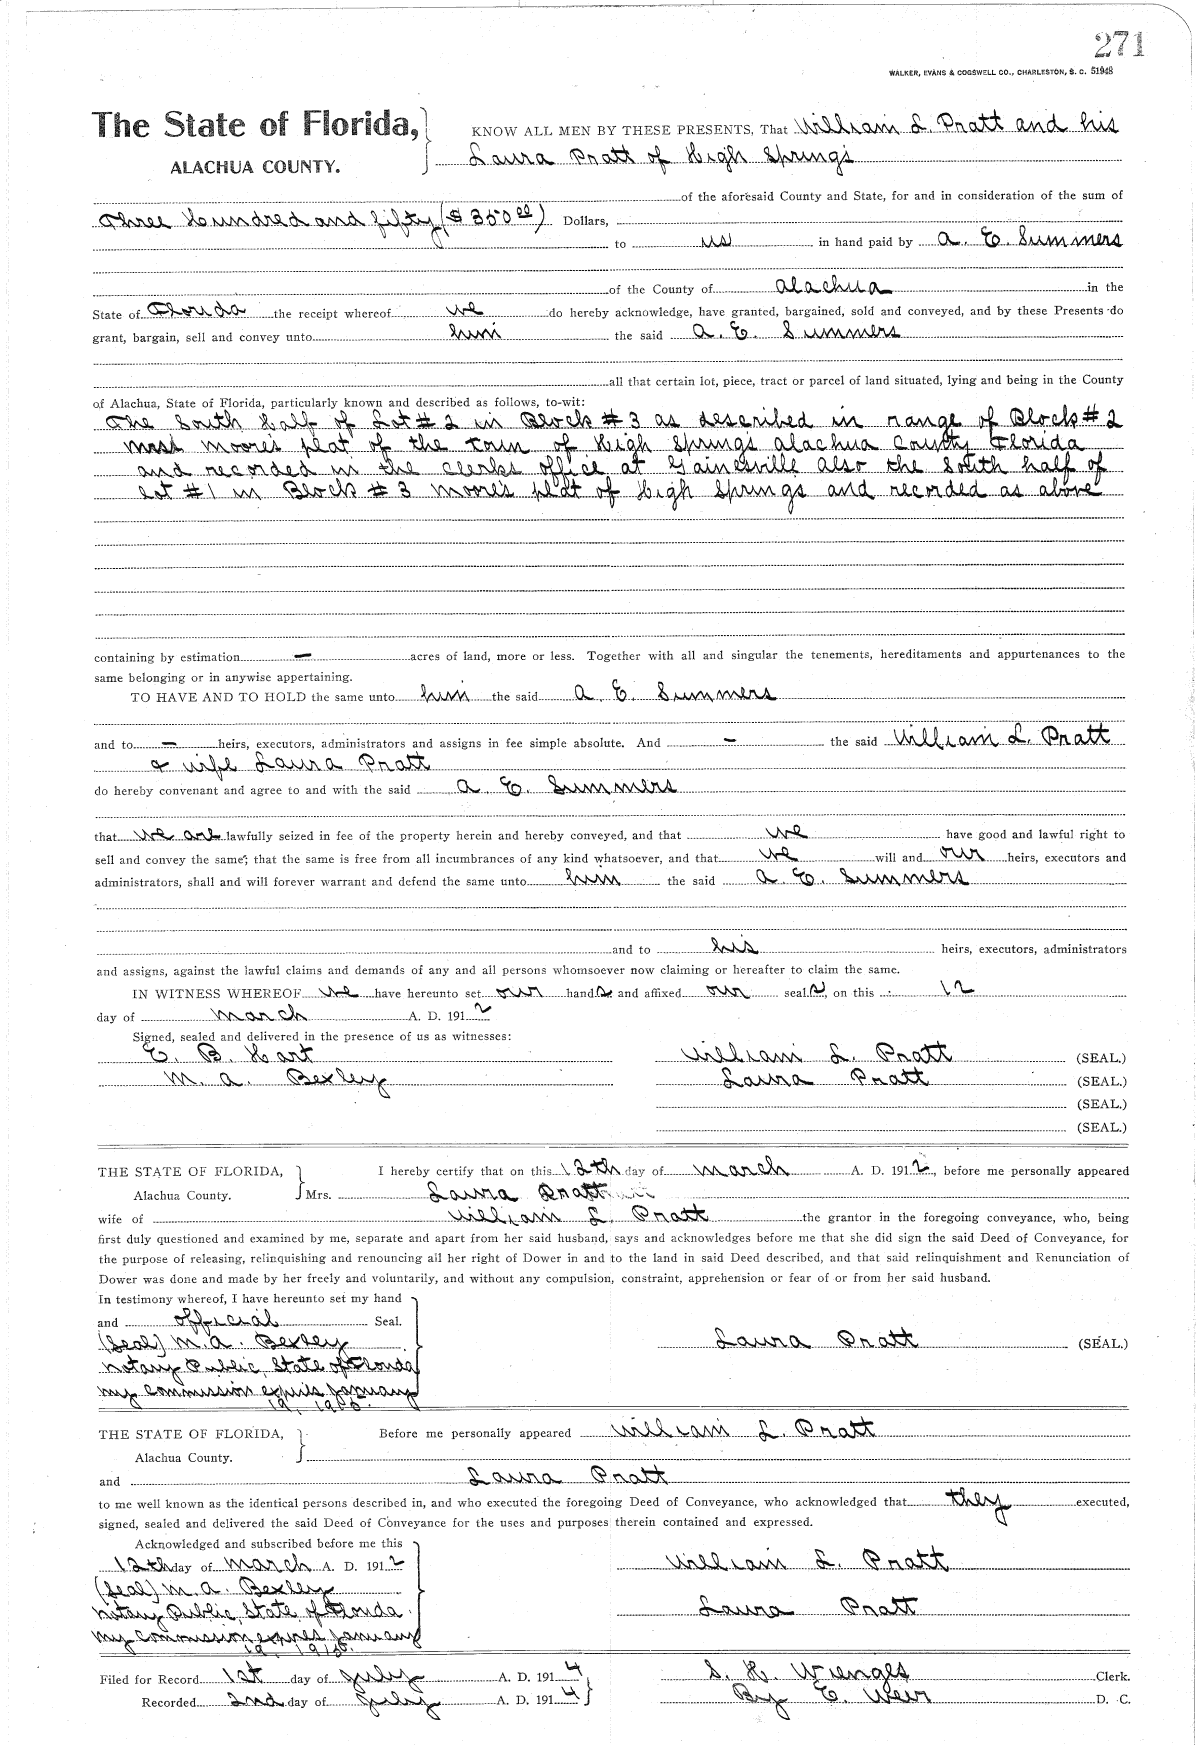 271
WALKER, EVANS & COGSWELL CO., CHARLESTON, S. C. 51948
The State of Florida,
ALACHUA COUNTY.
KNOW ALL MEN BY THESE PRESENTS, That William L. Pratt and his
Laura Pratt of High Springs
of the aforesaid County and State, for and in consideration of the sum of
Three Hundred and fifty ($350.00) Dollars,
to us in hand paid by A. E. Summers
of the County of Alachua in the
State of Florida the receipt whereof we do hereby acknowledge, have granted, bargained, sold and conveyed, and by these Presents do
grant, bargain, sell and convey unto him the said A. E. Summers
all that certain lot, piece, tract or parcel of land situated, lying and being in the County
of Alachua, State of Florida, particularly known and described as follows, to-wit:
The South Half of Lot # 2 in Block # 3 as described in range of Block # 2
moore's plat of the town of High Springs Alachua County Florida
and recorded in the clerks office at Gainesville also the South half of
Lot #1 in Block # 3 Moore's plat of High Springs and recorded as above
containing by estimation — acres of land, more or less. Together with all and singular the tenements, hereditaments and appurtenances to the
same belonging or in anywise appertaining.
TO HAVE AND TO HOLD the same unto him the said A. E. Summers
and to — heirs, executors, administrators and assigns in fee simple absolute. And — the said William L. Pratt
& wife Laura Pratt
do hereby convenant and agree to and with the said A. E. Summers
that we are lawfully seized in fee of the property herein and hereby conveyed, and that we have good and lawful right to
sell and convey the same; that the same is free from all incumbrances of any kind whatsoever, and that we will and our heirs, executors and
administrators, shall and will forever warrant and defend the same unto him the said A. E. Summers
and to his heirs, executors, administrators
and assigns, against the lawful claims and demands of any and all persons whomsoever now claiming or hereafter to claim the same.
IN WITNESS WHEREOF we have hereunto set our hands and affixed our seals, on this 12
day of March A. D. 1912
Signed, sealed and delivered in the presence of us as witnesses:
E. B. Hart William L. Pratt (SEAL.)
M. A. Bexley Laura Pratt (SEAL.)
(SEAL.)
(SEAL.)
THE STATE OF FLORIDA,
Alachua County.
I hereby certify that on this 12th day of March A. D. 1912, before me personally appeared
Mrs. Laura Pratt
wife of William L. Pratt the grantor in the foregoing conveyance, who, being
first duly questioned and examined by me, separate and apart from her said husband, says and acknowledges before me that she did sign the said Deed of Conveyance, for
the purpose of releasing, relinquishing and renouncing all her right of Dower in and to the land in said Deed described, and that said relinquishment and Renunciation of
Dower was done and made by her freely and voluntarily, and without any compulsion, constraint, apprehension or fear of or from her said husband.
In testimony whereof, I have hereunto set my hand
and official Seal.
(Seal) M. A. Bexley Laura Pratt (SEAL.)
Notary Public, State of Florida
My commission expires January
19,
THE STATE OF FLORIDA,
Alachua County.
Before me personally appeared William L. Pratt
and Laura Pratt
to me well known as the identical persons described in, and who executed the foregoing Deed of Conveyance, who acknowledged that they executed,
signed, sealed and delivered the said Deed of Conveyance for the uses and purposes therein contained and expressed.
Acknowledged and subscribed before me this
12th day of March A. D. 1912 William L. Pratt
(Seal) M. A. Bexley
Notary Public, State of Florida Laura Pratt
My commission expires January
19,
Filed for Record 1st day of July A. D. 1914 S. H. Wienges Clerk.
Recorded 2nd day of July A. D. 1914 By E. Weir D. C.